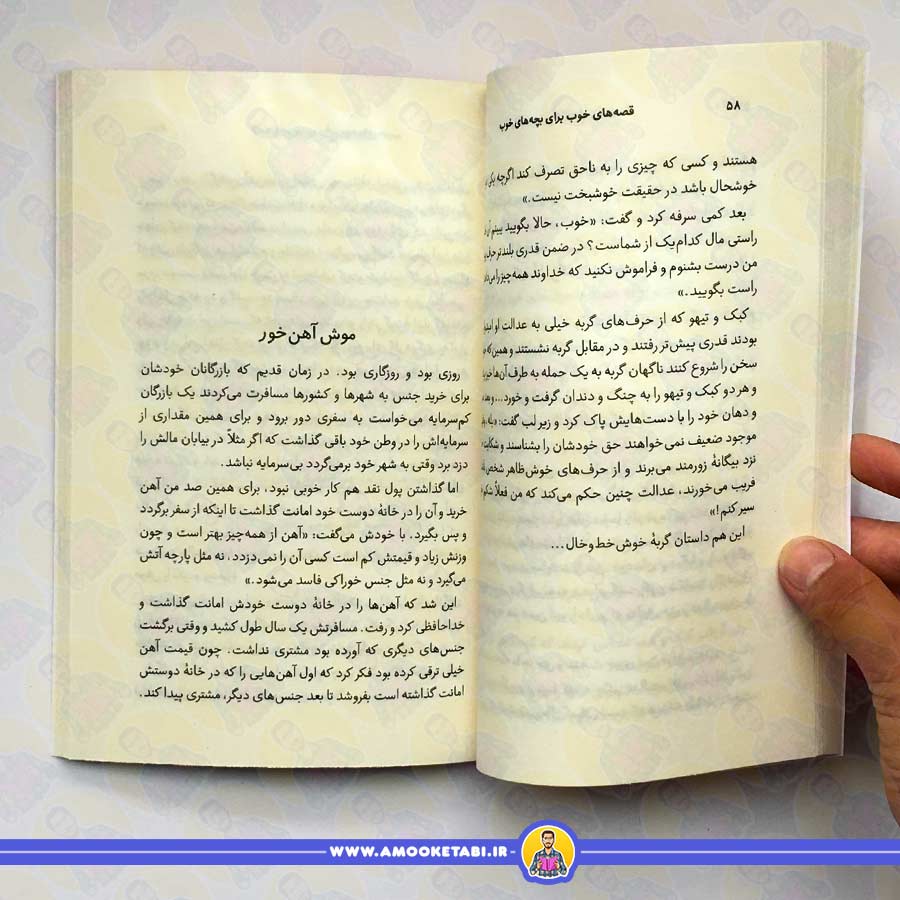 ۵۸
قصه‌های خوب برای بچه‌های خوب
هستند و کسی که چیزی را به ناحق تصرف کند اگرچه
خوشحال باشد در حقیقت خوشبخت نیست.»
بعد کمی سرفه کرد و گفت: «خوب، حالا بگویید ببینم
راستی مال کدام‌یک از شماست؟ در ضمن قدری بلندتر
من درست بشنوم و فراموش نکنید که خداوند همه‌چیز را
راست بگویید.»
کبک و تیهو که از حرف‌های گربه خیلی به عدالت او
بودند قدری پیش‌تر رفتند و در مقابل گربه نشستند و همین
سخن را شروع کنند ناگهان گربه به یک حمله به طرف آن‌ها
و هر دو کبک و تیهو را به چنگ و دندان گرفت و خورد...
و دهان خود را با دست‌هایش پاک کرد و زیر لب گفت:
موجود ضعیف نمی‌خواهند حق خودشان را بشناسند و
نزد بیگانهٔ زورمند می‌برند و از حرف‌های خوش‌ظاهر شخص
فریب می‌خورند، عدالت چنین حکم می‌کند که من فعلاً
سیر کنم!»
این هم داستان گربهٔ خوش‌خط‌وخال...
موش آهن‌خور
روزی بود و روزگاری بود. در زمان قدیم که بازرگانان خودشان
برای خرید جنس به شهرها و کشورها مسافرت می‌کردند یک بازرگان
کم‌سرمایه می‌خواست به سفری دور برود و برای همین مقداری از
سرمایه‌اش را در وطن خود باقی گذاشت که اگر مثلاً در بیابان مالش را
دزد برد وقتی به شهر خود برمی‌گردد بی‌سرمایه نباشد.
اما گذاشتن پول نقد هم کار خوبی نبود، برای همین صد من آهن
خرید و آن را در خانهٔ دوست خود امانت گذاشت تا اینکه از سفر برگردد
و پس بگیرد. با خودش می‌گفت: «آهن از همه‌چیز بهتر است و چون
وزنش زیاد و قیمتش کم است کسی آن را نمی‌دزدد، نه مثل پارچه آتش
می‌گیرد و نه مثل جنس خوراکی فاسد می‌شود.»
این شد که آهن‌ها را در خانهٔ دوست خودش امانت گذاشت و
خداحافظی کرد و رفت. مسافرتش یک سال طول کشید و وقتی برگشت
جنس‌های دیگری که آورده بود مشتری نداشت. چون قیمت آهن
خیلی ترقی کرده بود فکر کرد که اول آهن‌هایی را که در خانهٔ دوستش
امانت گذاشته است بفروشد تا بعد جنس‌های دیگر، مشتری پیدا کند.
WWW.AMOOKETABI.IR